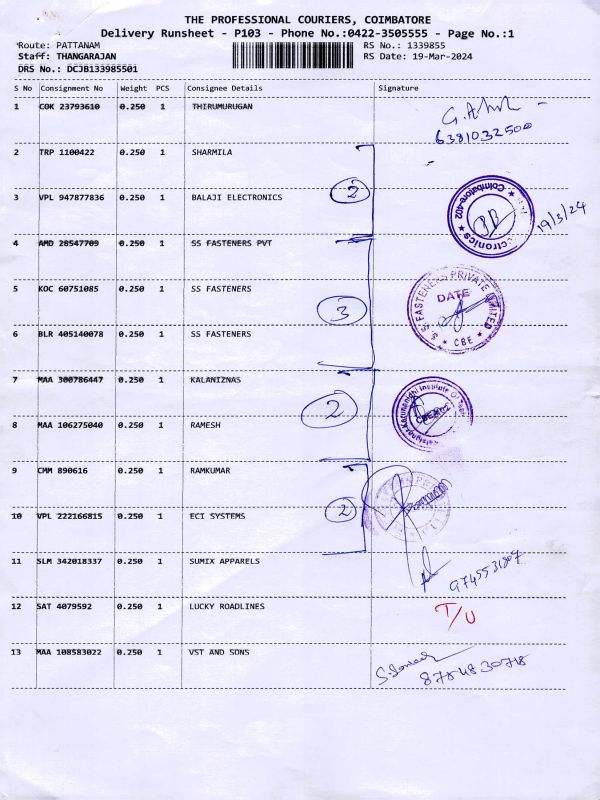 THE PROFESSIONAL COURIERS, COIMBATORE
Delivery Runsheet - P103 - Phone No.:0422-3505555 - Page No.:1
Route: PATTANAM RS No.: 1339855
Staff: THANGARAJAN RS Date: 19-Mar-2024
DRS No.: DCJB133985501
S No Consignment No Weight PCS Consignee Details Signature
1 COK 23793610 0.250 1 THIRUMURUGAN
6381032500
2 TRP 1100422 0.250 1 SHARMILA
3 VPL 947877836 0.250 1 BALAJI ELECTRONICS 2 Coimbatore-402 19/3/24
4 AMD 28547709 0.250 1 SS FASTENERS PVT
5 KOC 60751085 0.250 1 SS FASTENERS 3 S.S. FASTENERS PRIVATE LIMITED DATE CBE
6 BLR 405140078 0.250 1 SS FASTENERS
7 MAA 300786447 0.250 1 KALANIZNAS 2
8 MAA 106275040 0.250 1 RAMESH
9 CMM 890616 0.250 1 RAMKUMAR
10 VPL 222166815 0.250 1 ECI SYSTEMS 2
11 SLM 342018337 0.250 1 SUMIX APPARELS
12 SAT 4079592 0.250 1 LUCKY ROADLINES T/U
13 MAA 108583022 0.250 1 VST AND SONS
8784830718